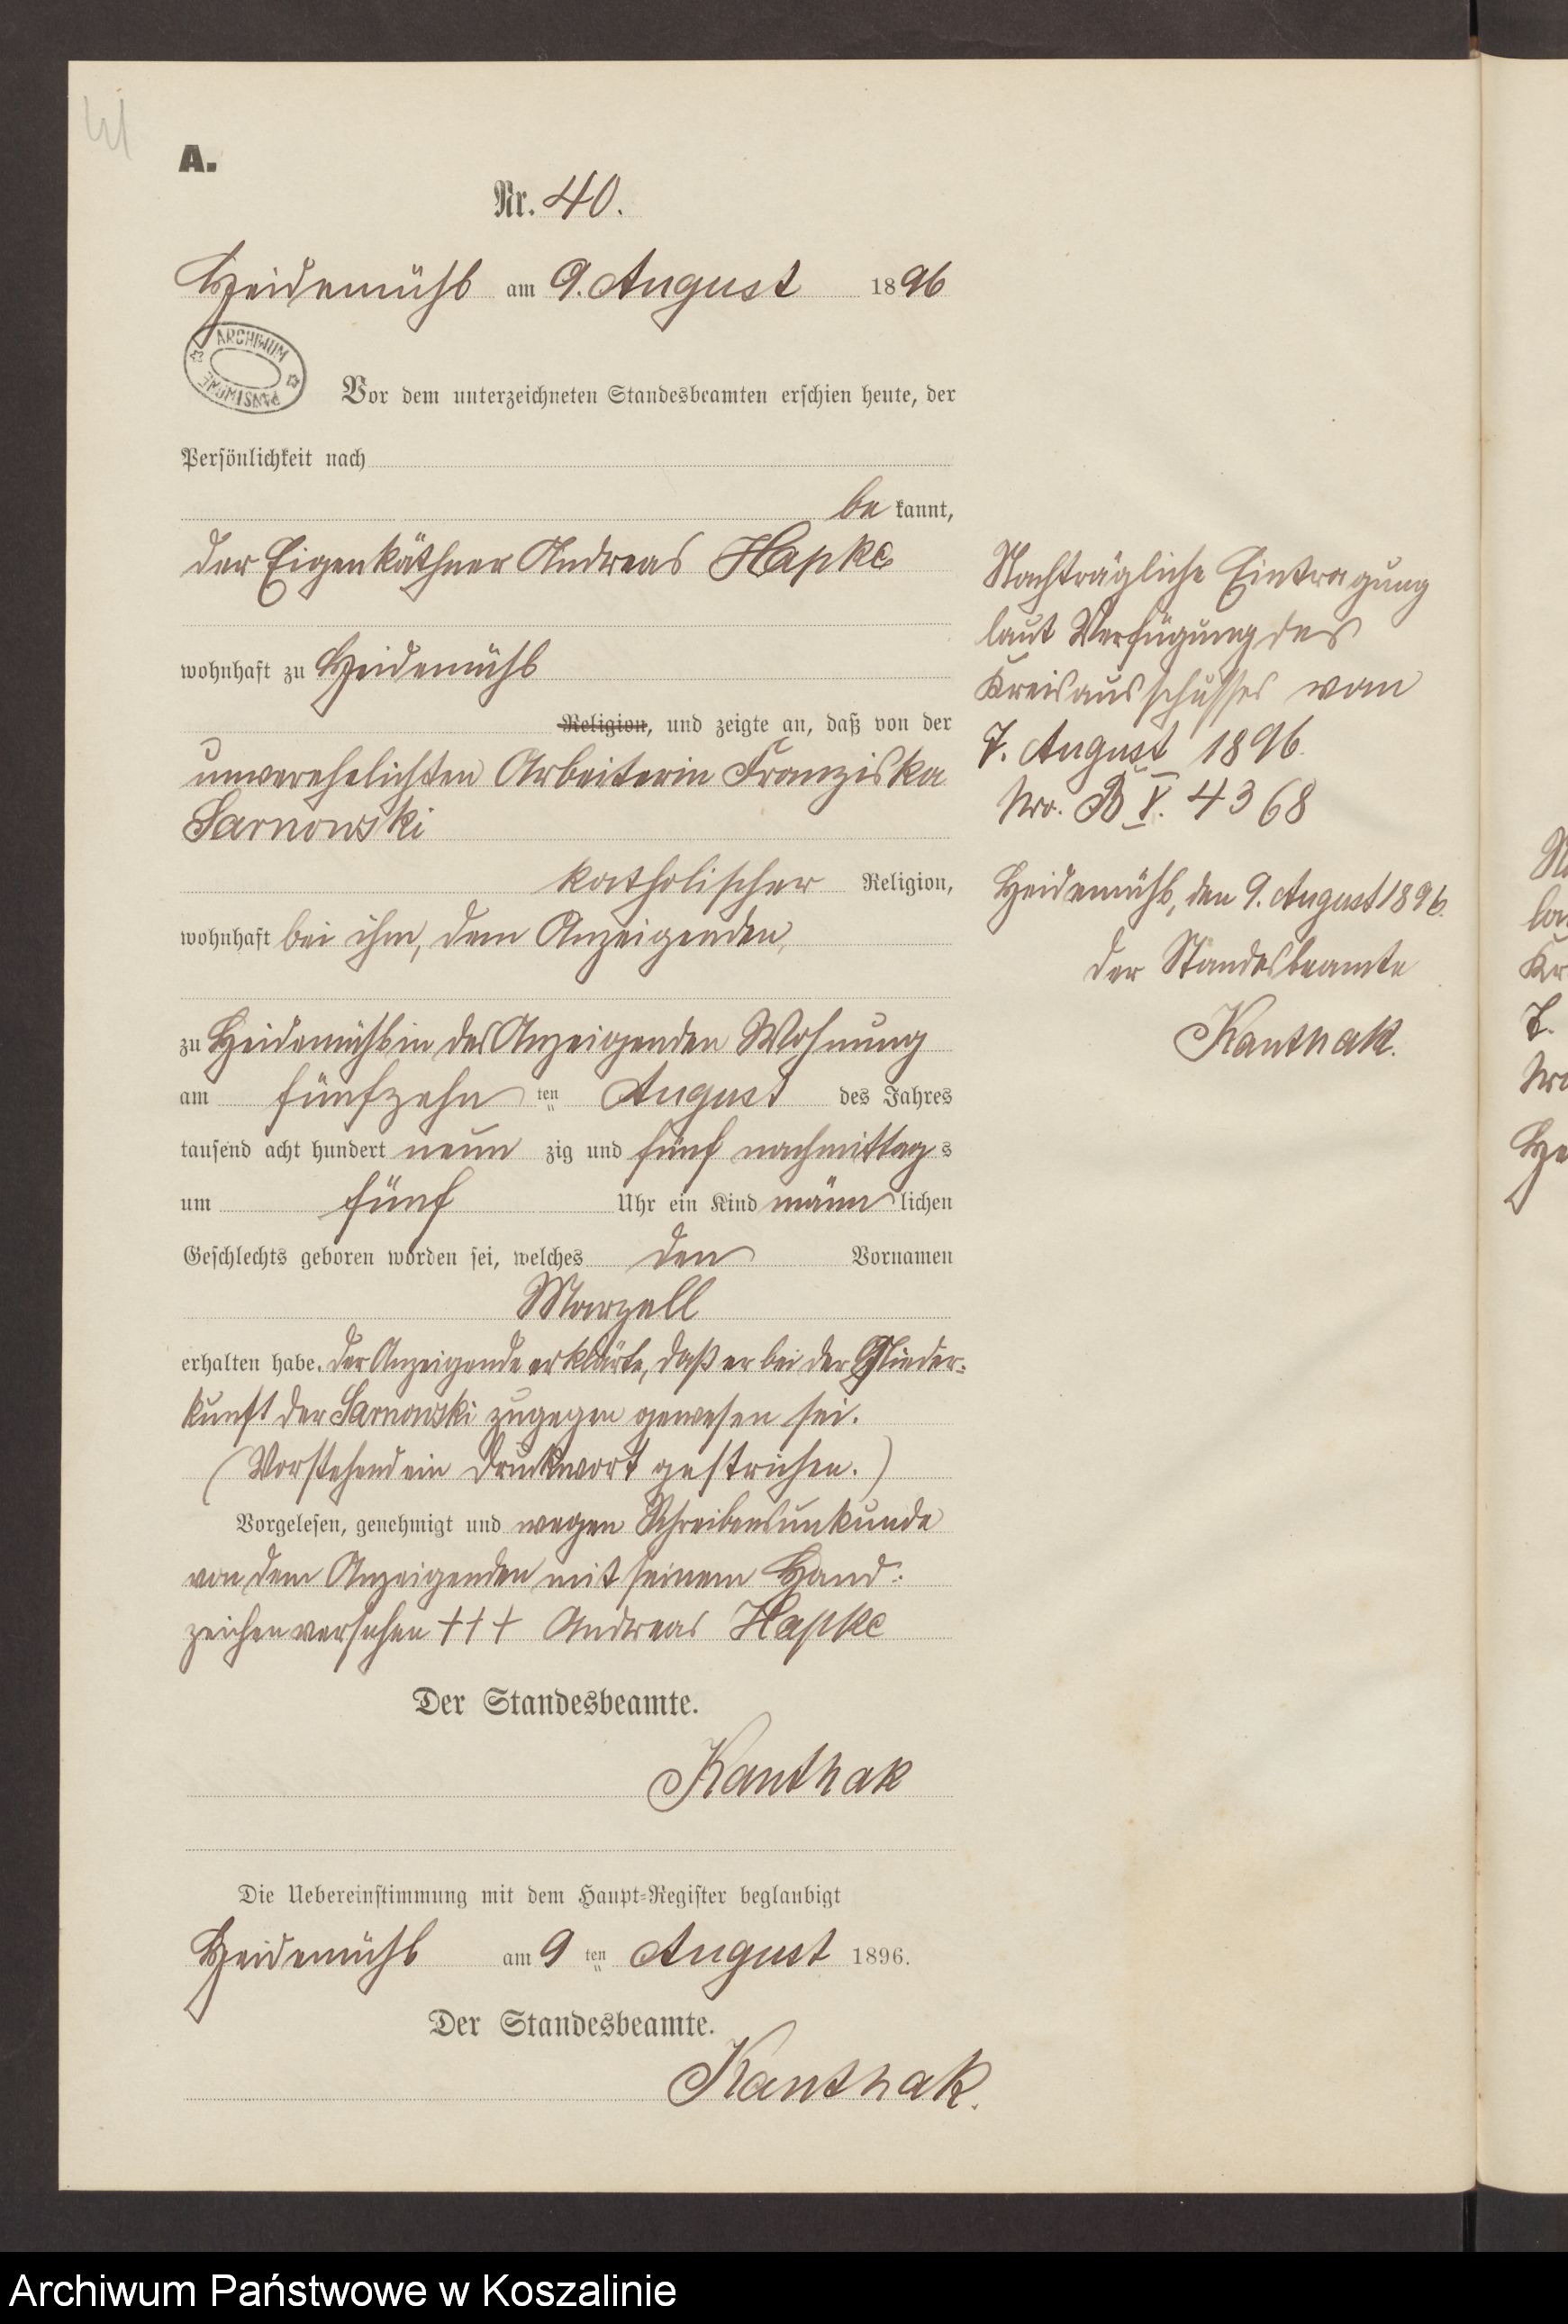 41
A.
Nr. 40.
Heidemühl am 9. August 1896
ARCHIWUM PAŃSTWOWE
Vor dem unterzeichneten Standesbeamten erschien heute, der
Persönlichkeit nach
be kannt,
der Eigenkäthner Andreas Hapke
wohnhaft zu Heidemühl
Religion, und zeigte an, daß von der
unverehelichten Arbeiterin Franziska
Sarnowski
katholischer Religion,
wohnhaft bei ihm, dem Anzeigenden,
zu Heidemühl in des Anzeigenden Wohnung
am fünfzehn ten August des Jahres
tausend acht hundert neun zig und fünf nachmittag s
um fünf Uhr ein Kind männ lichen
Geschlechts geboren worden sei, welches den Vornamen
Marzell
erhalten habe. Der Anzeigende erklärte, daß er bei der Nieder-
kunft der Sarnowski zugegen gewesen sei.
(Vorstehend ein Druckwort gestrichen.)
Vorgelesen, genehmigt und wegen Schreibensunkunde
von dem Anzeigenden mit seinem Hand-
zeichen versehen +++ Andreas Hapke
Der Standesbeamte.
Kanthak
Die Uebereinstimmung mit dem Haupt-Register beglaubigt
Heidemühl am 9 ten August 1896.
Der Standesbeamte.
Kanthak.
Nachträgliche Eintragung
laut Verfügung des
Kreisausschusses vom
7. August 1896.
Nro. B V. 4368
Heidemühl, den 9. August 1896.
Der Standesbeamte
Kanthak.
Archiwum Państwowe w Koszalinie